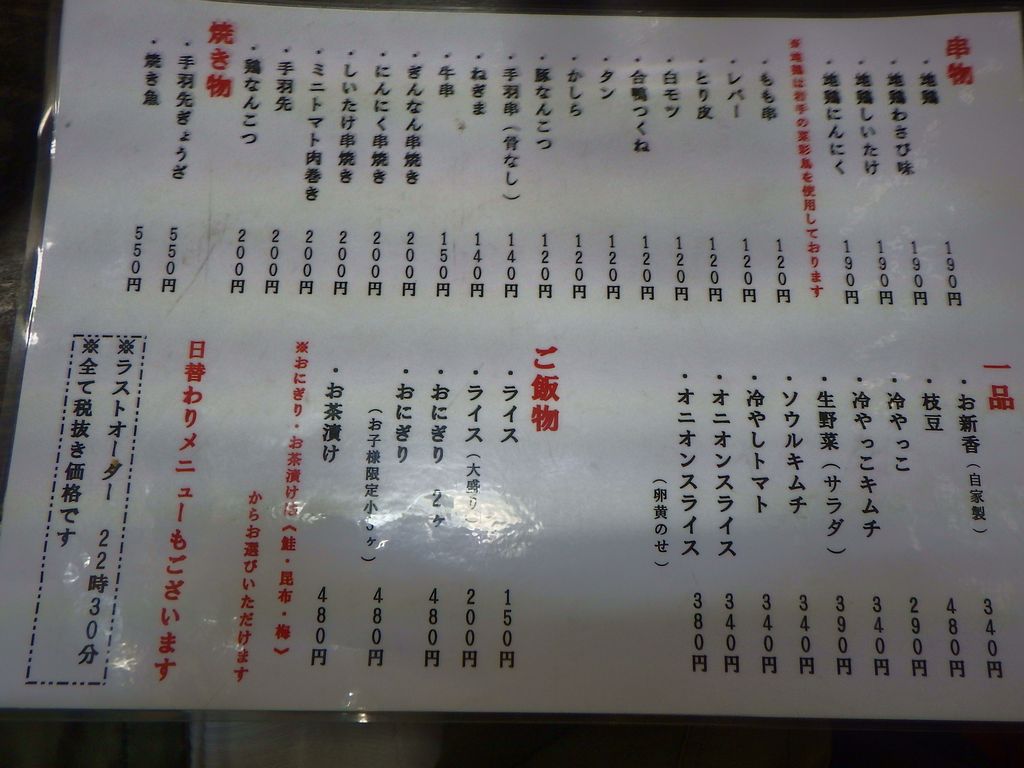 串物
・地鶏 190円
・地鶏わさび味 190円
・地鶏しいたけ 190円
・地鶏にんにく 190円
※地鶏は岩手の菜彩鳥を使用しております
・もも串 120円
・レバー 120円
・とり皮 120円
・白モツ 120円
・合鴨つくね 120円
・タン 120円
・かしら 120円
・豚なんこつ 120円
・手羽串(骨なし) 140円
・ねぎま 140円
・牛串 150円
・ぎんなん串焼き 200円
・にんにく串焼き 200円
・しいたけ串焼き 200円
・ミニトマト肉巻き 200円
・手羽先 200円
・鶏なんこつ 200円
焼き物
・手羽先ぎょうざ 550円
・焼き魚 550円
一品
・お新香(自家製) 340円
・枝豆 480円
・冷やっこ 290円
・冷やっこキムチ 340円
・生野菜(サラダ) 390円
・ソウルキムチ 340円
・冷やしトマト 340円
・オニオンスライス 340円
・オニオンスライス 380円
(卵黄のせ)
ご飯物
・ライス 150円
・ライス(大盛り) 200円
・おにぎり 2ヶ 480円
・おにぎり 480円
(お子様限定小3ヶ)
・お茶漬け 480円
※おにぎり・お茶漬けは《鮭・昆布・梅》
からお選びいただけます
日替わりメニューもございます
※ラストオーダー 22時30分
※全て税抜き価格です